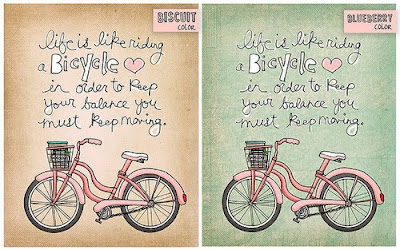 BISCUIT
COLOR
life is like riding
a Bicycle
in order to keep
your balance you
must keep moving.
BLUEBERRY
COLOR
life is like riding
a Bicycle
in order to keep
your balance you
must keep moving.